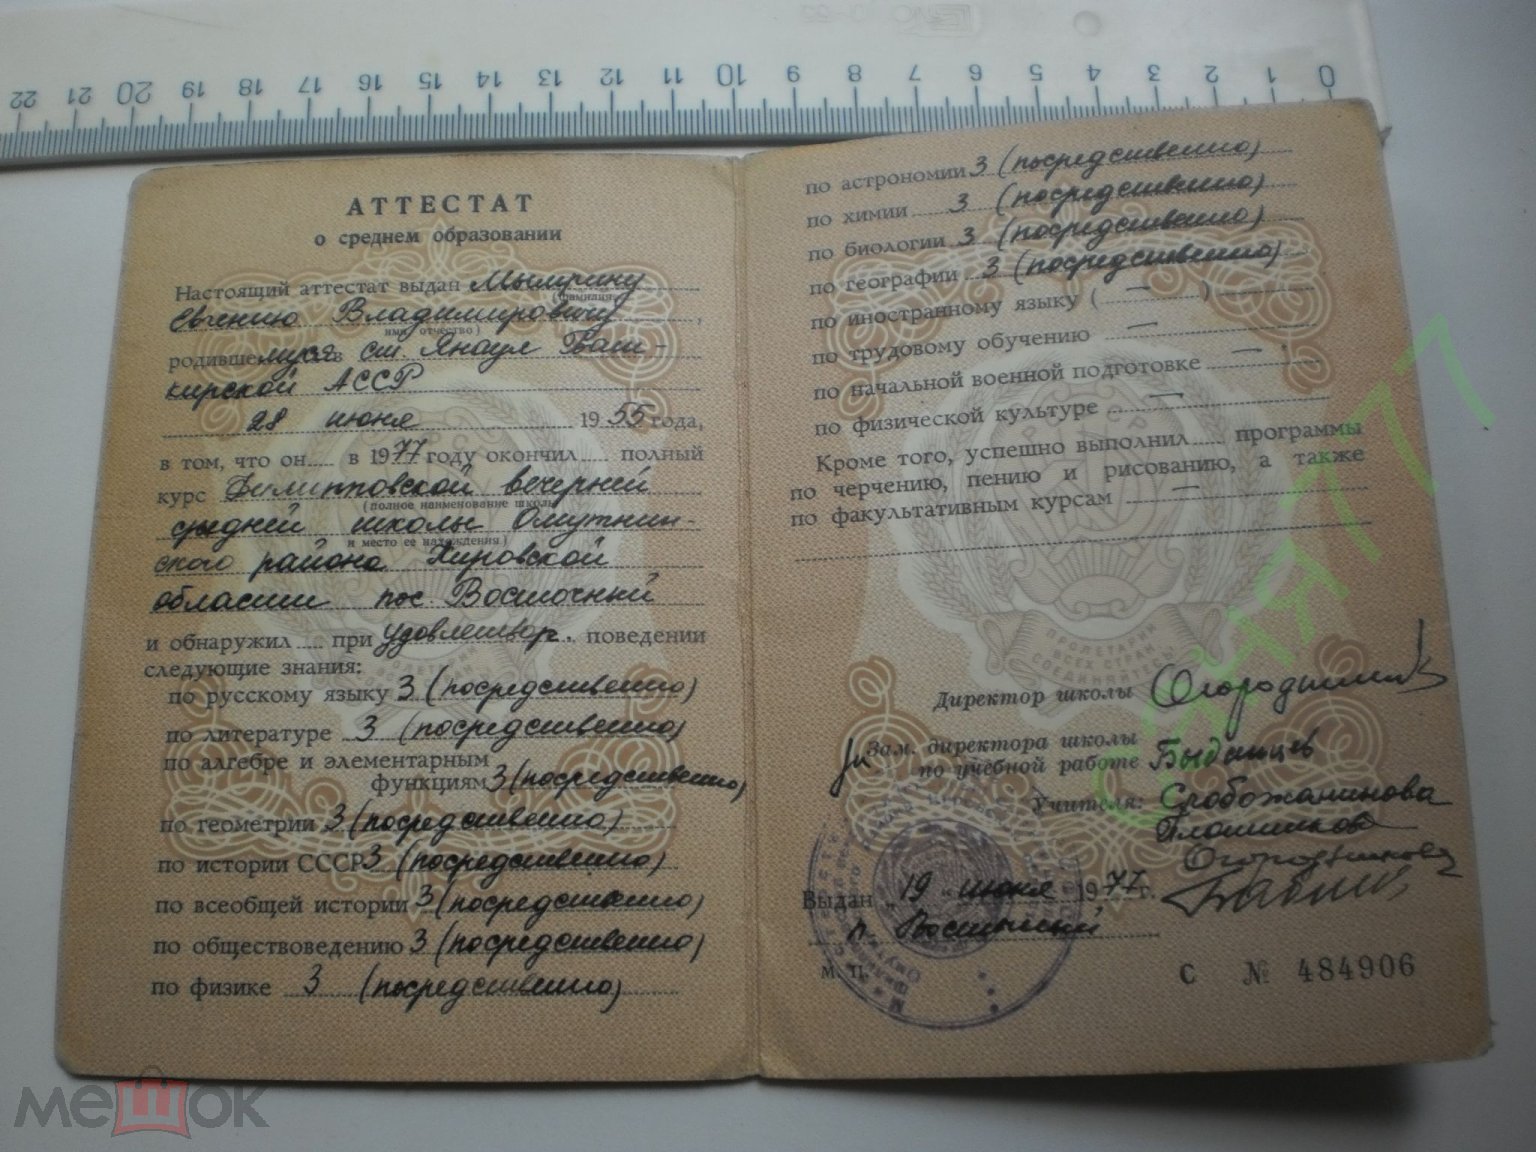 22 21 20 19 18 17 16 15 14 13 12 11 10 9 8 7 6 5 4 3 2 1 0
АТТЕСТАТ
о среднем образовании
Настоящий аттестат выдан Мымрину
(фамилия,
Евгению Владимировичу,
имя, отчество)
родившемуся в ст. Янаул Баш-
кирской АССР
28 июня 1955 года,
в том, что он в 1977 году окончил полный
курс Филипповской вечерней
(полное наименование школы
средней школы Омутнин-
и место ее нахождения)
ского района Кировской
области пос. Восточный
и обнаружил при удовлетвор. поведении
следующие знания:
по русскому языку 3 (посредственно)
по литературе 3 (посредственно)
по алгебре и элементарным
функциям 3 (посредственно)
по геометрии 3 (посредственно)
по истории СССР 3 (посредственно)
по всеобщей истории 3 (посредственно)
по обществоведению 3 (посредственно)
по физике 3 (посредственно)
по астрономии 3 (посредственно)
по химии 3 (посредственно)
по биологии 3 (посредственно)
по географии 3 (посредственно)
по иностранному языку ( — )
по трудовому обучению —
по начальной военной подготовке —
по физической культуре —
Кроме того, успешно выполнил программы
по черчению, пению и рисованию, а также
по факультативным курсам —
ПРОЛЕТАРИИ
ВСЕХ СТРАН
СОЕДИНЯЙТЕСЬ!
Директор школы Огородников
Зам. директора школы
по учебной работе Быданцев
Учителя: Сробожанинова
Плотникова
Огородникова
Выдан „19„ июня 1977 г.
п. Восточный
М. П.
С № 484906
мешок